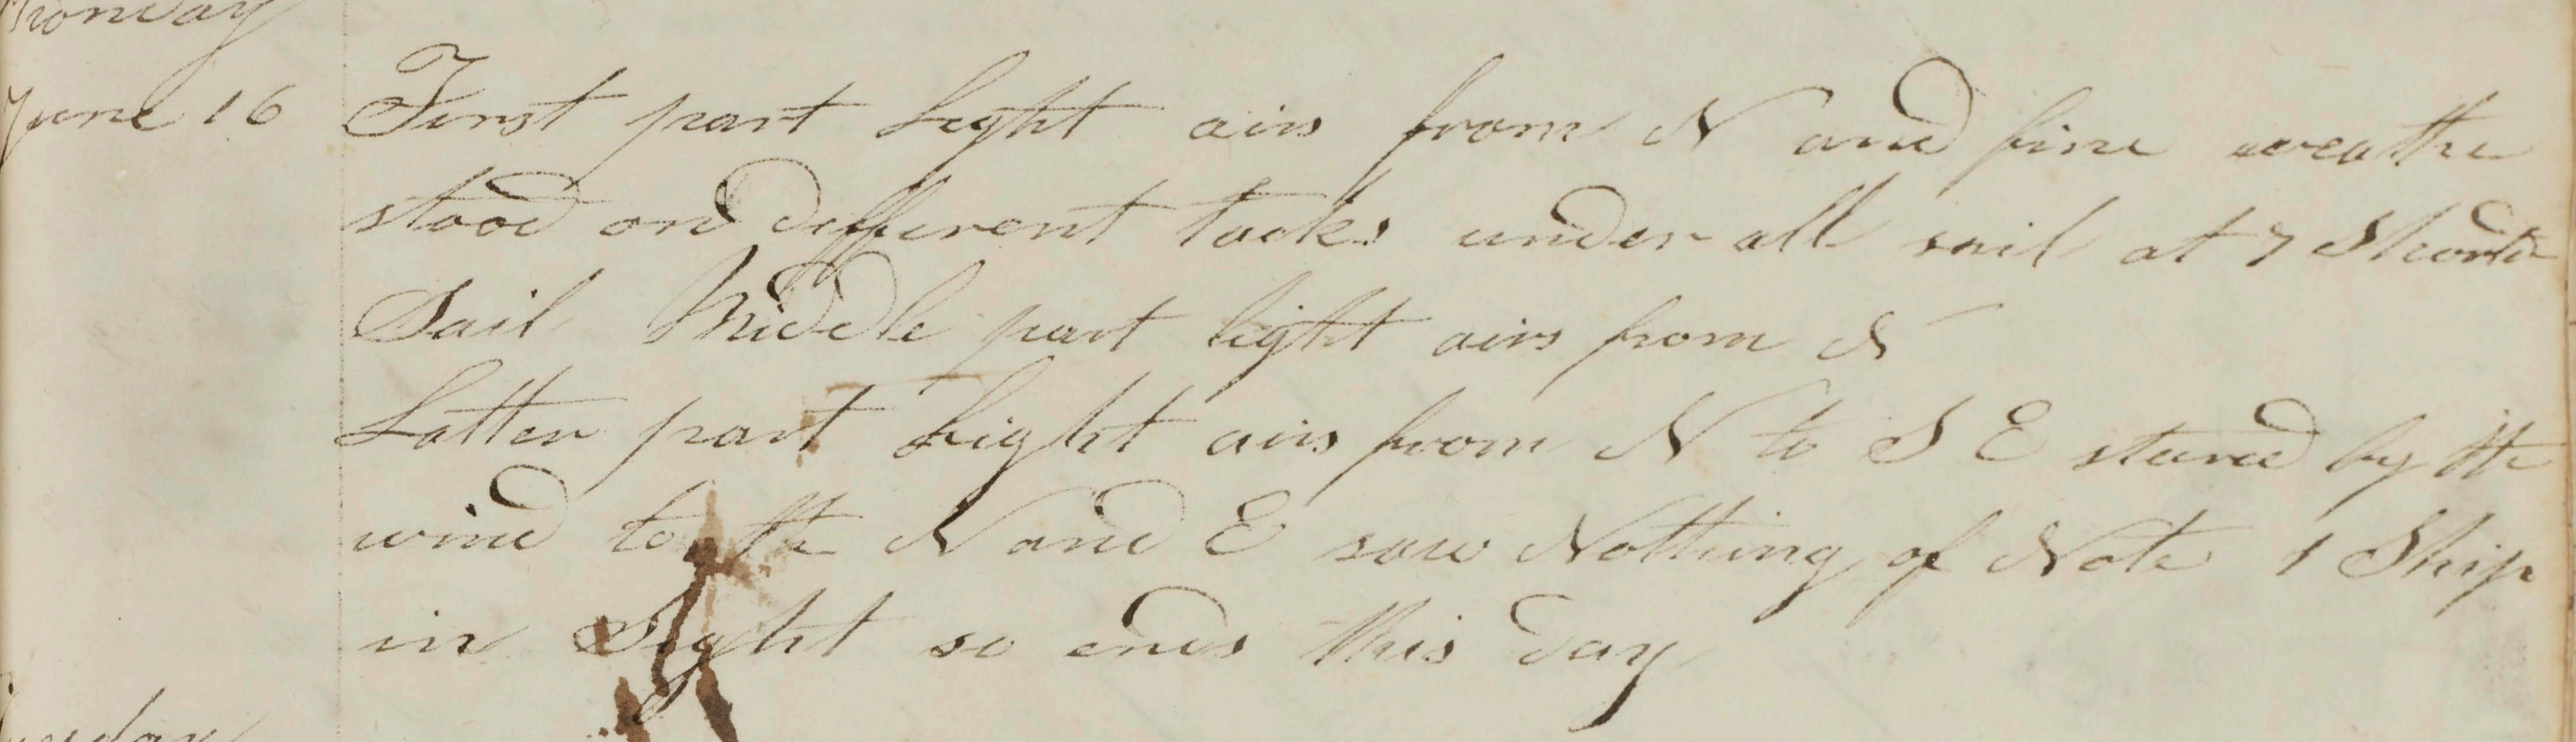 Monday
June 16 First part Light airs from N and fine weathe
stood on different tacks under all sail at 7 Short
Sail Middle part light airs from N
Latter part Light airs from N to S E steared by the
wind to the N and E saw Nothing of Note 1 Ship
in Sight so ends this day